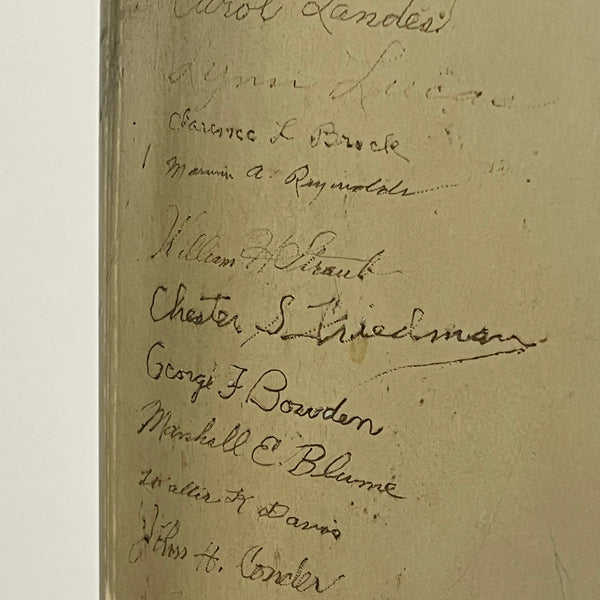 Carol Landes
Lynn Lucas
Clarence L Brock
Marvin A. Reynolds
William H Straub
Chester S Friedman
George F Bowden
Marshall E. Blume
Wallis K Davis
John H. Conder